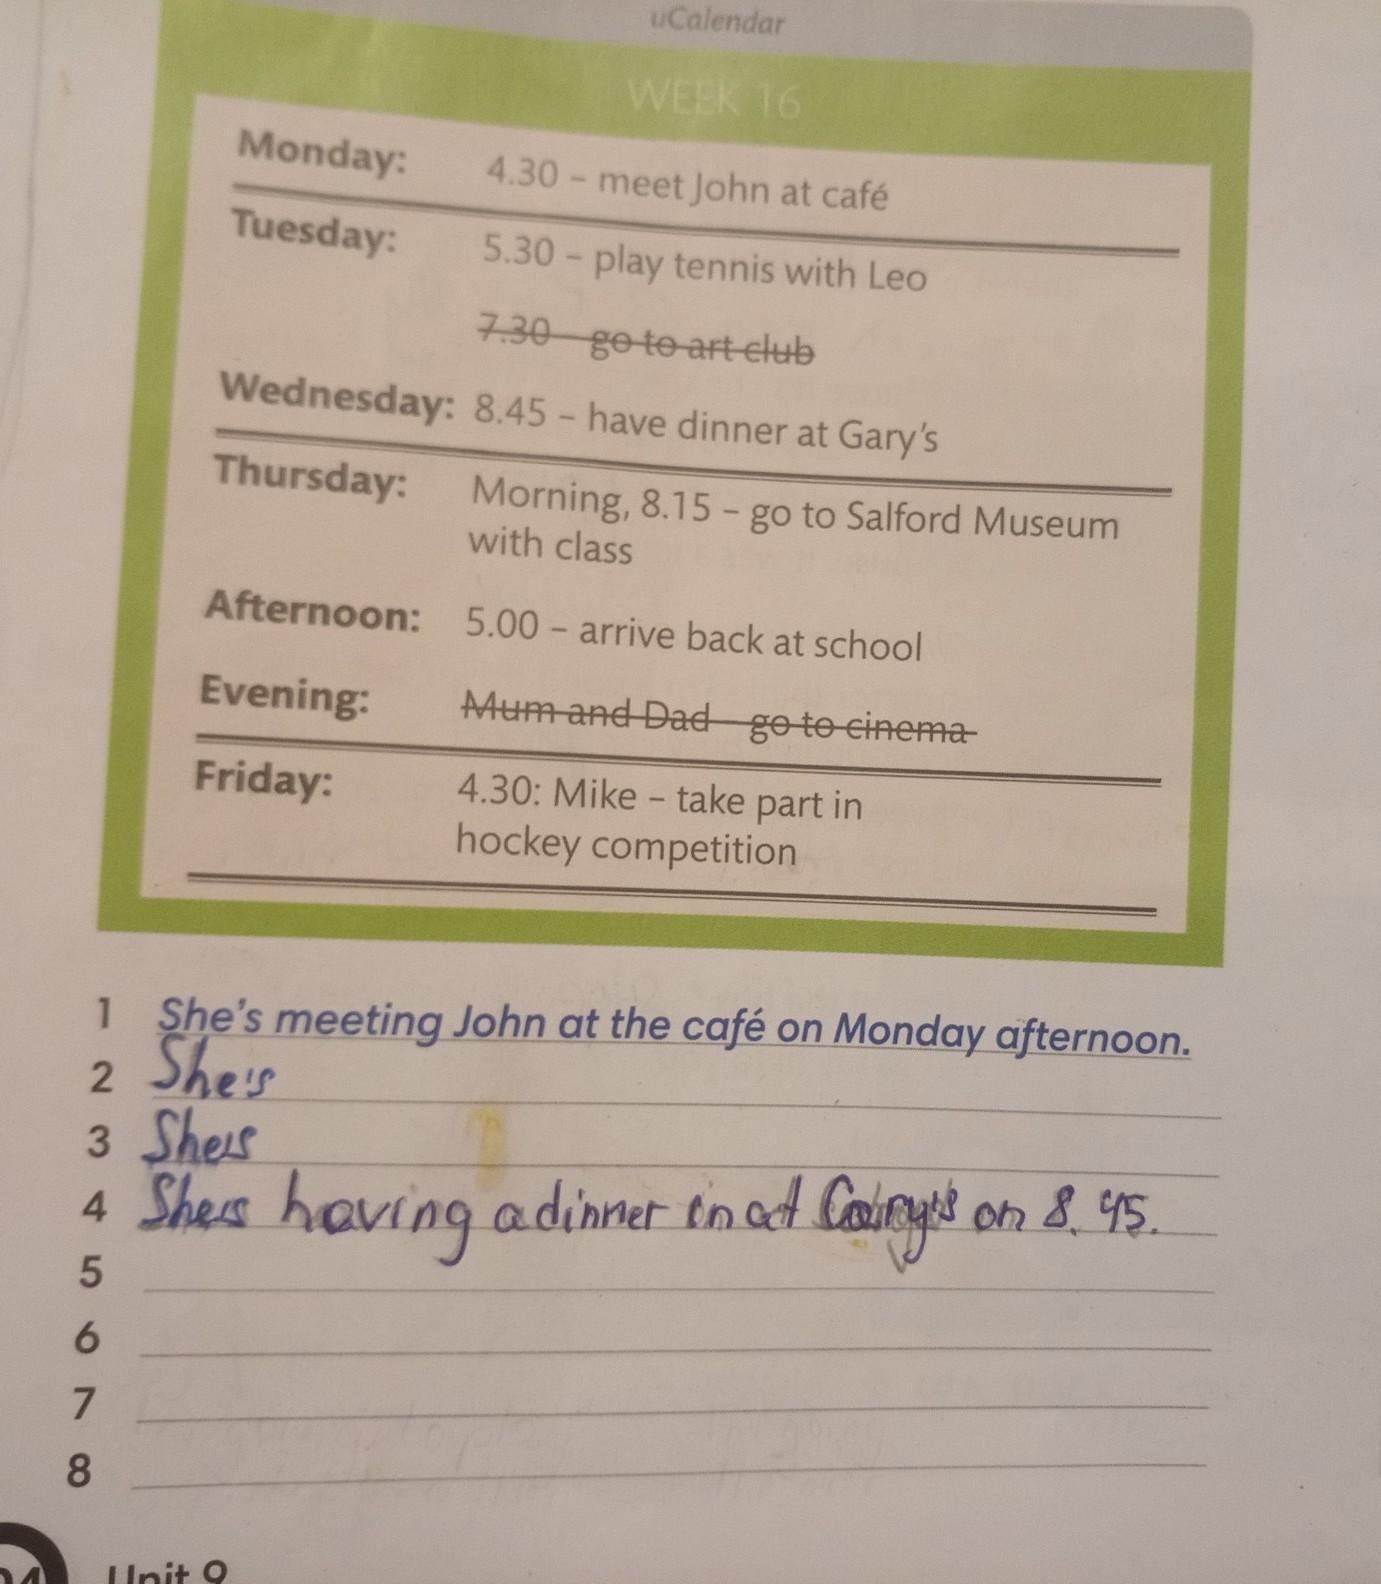 uCalendar
WEEK 16
Monday: 4.30 – meet John at café
Tuesday: 5.30 – play tennis with Leo
7.30 – go to art club
Wednesday: 8.45 – have dinner at Gary's
Thursday: Morning, 8.15 – go to Salford Museum
with class
Afternoon: 5.00 – arrive back at school
Evening: Mum and Dad – go to cinema
Friday: 4.30: Mike – take part in
hockey competition
1 She's meeting John at the café on Monday afternoon.
2 She's
3 She's
4 She's having a dinner in at Gary's on 8.45.
5
6
7
8
Unit 9